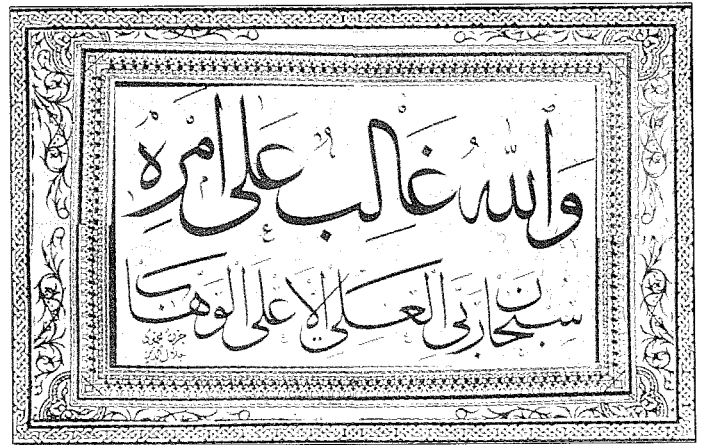 وَٱللهُ غَالِبٌ عَلَى أَمْرِهِ
سبحان ربي العلي الاعلى الوهاب